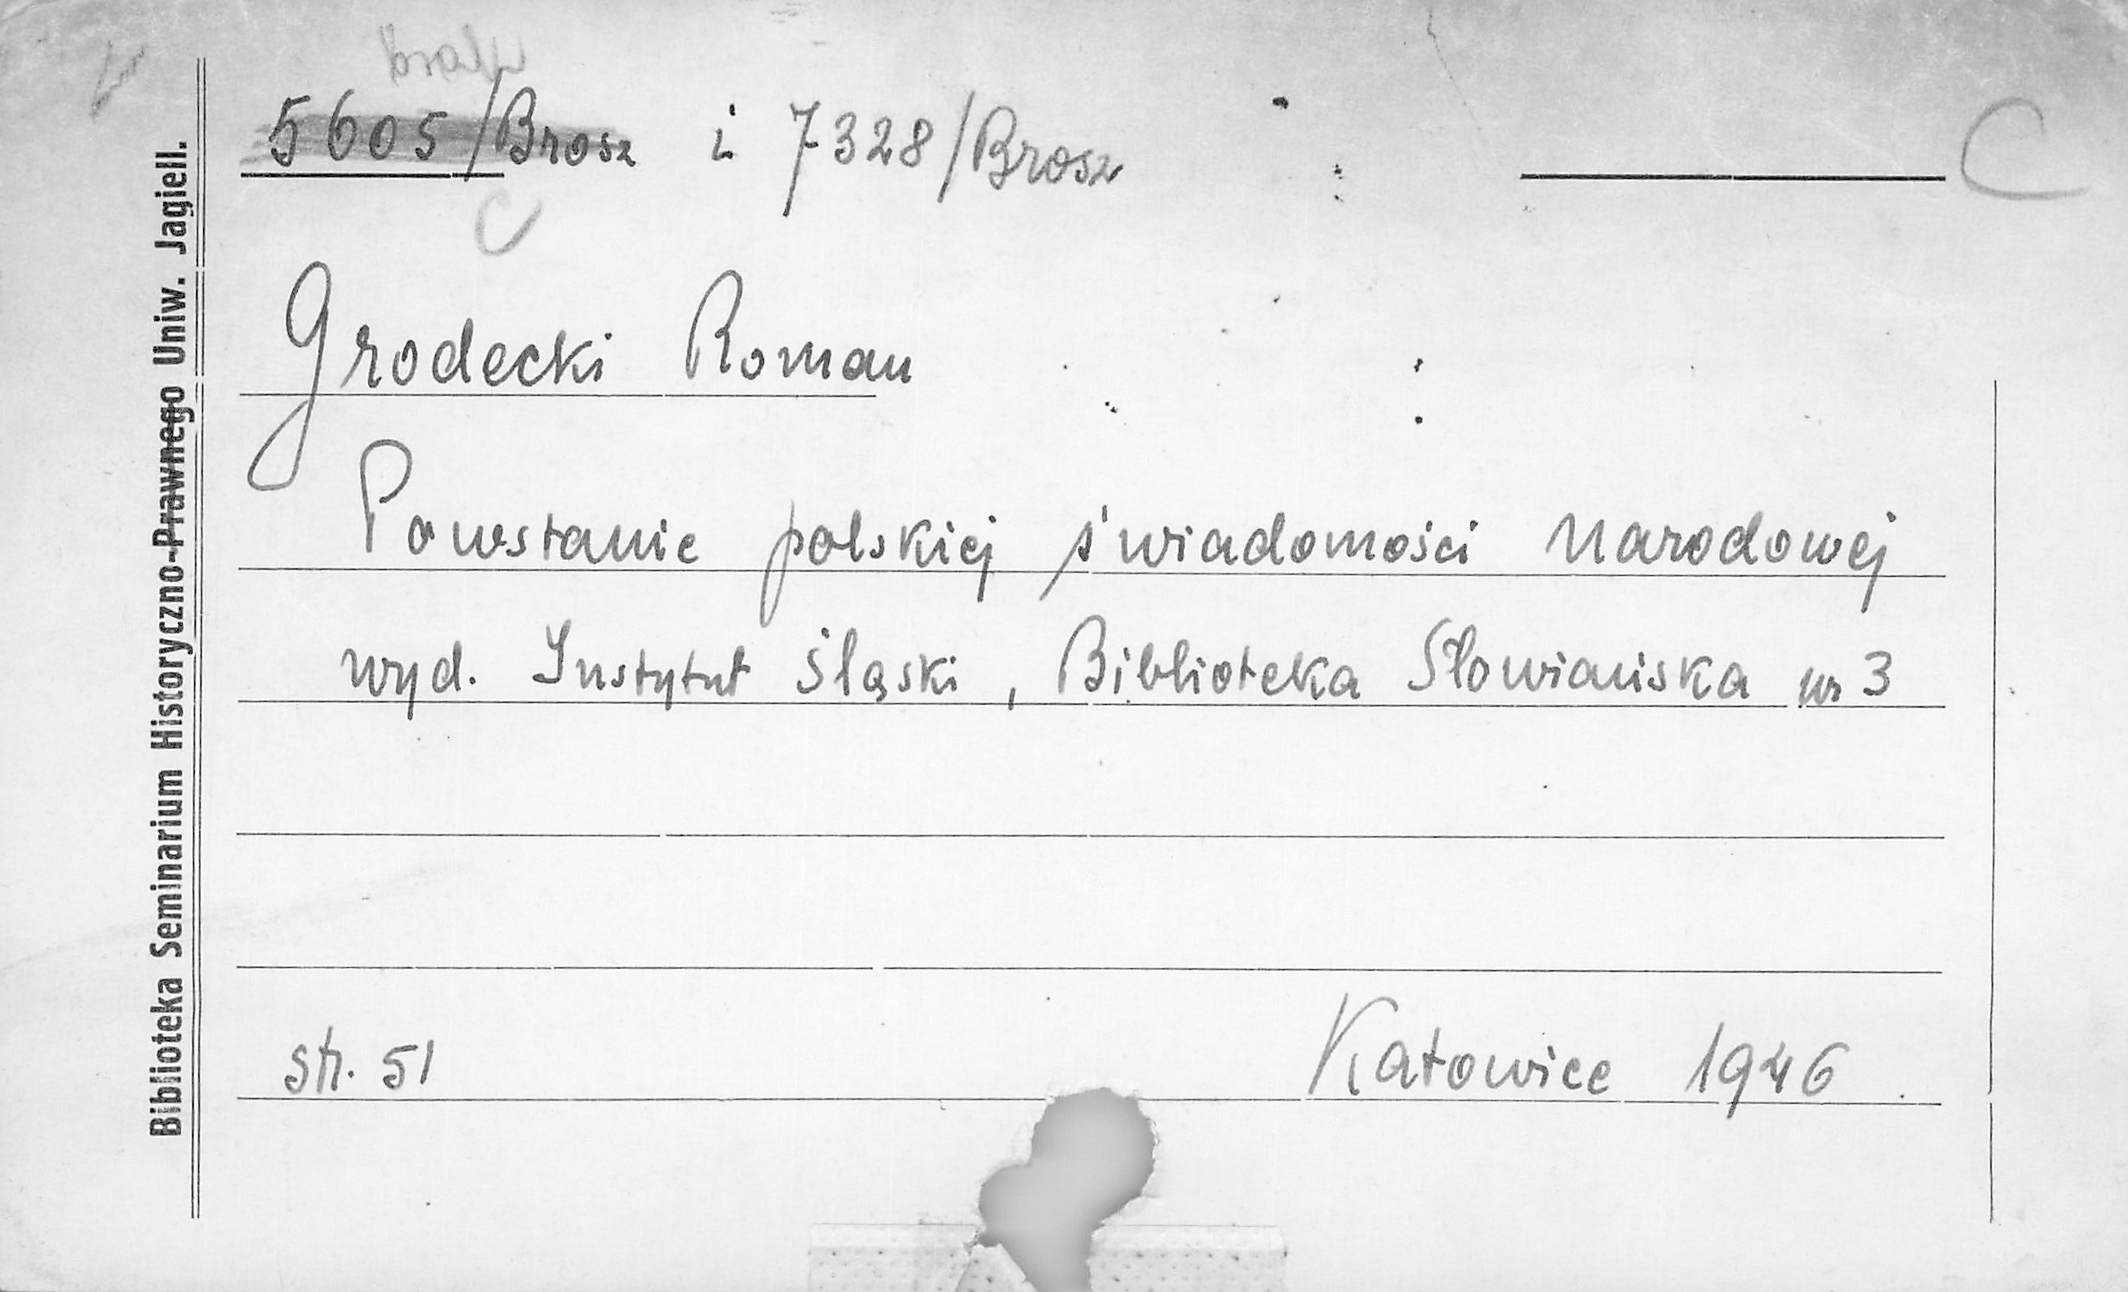 5605/Brosz i 7328/Brosz
C
C
Grodecki Roman
Powstanie polskiej świadomości narodowej
wyd. Instytut Śląski, Biblioteka Słowiańska nr 3
str. 51
Katowice 1946
Biblioteka Seminarium Historyczno-Prawnego Uniw. Jagiell.